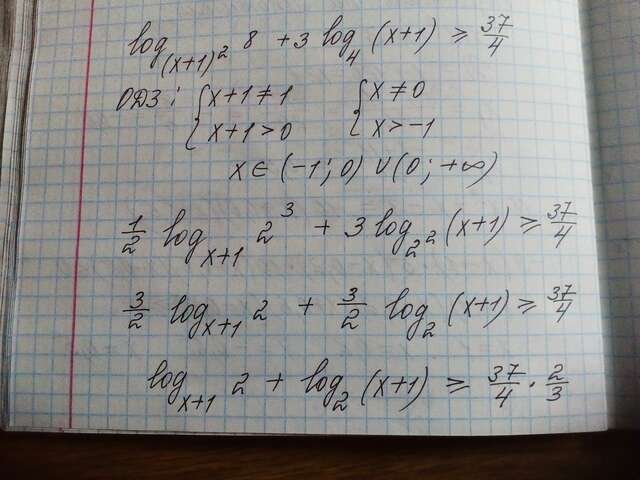 log_{(x+1)^2} 8 + 3 log_4 (x+1) ≥ 37/4
ОДЗ: { x+1 ≠ 1 { x ≠ 0
{ x+1 > 0 { x > -1
x ∈ (-1; 0) ∪ (0; +∞)
1/2 log_{x+1} 2^3 + 3 log_{2^2} (x+1) ≥ 37/4
3/2 log_{x+1} 2 + 3/2 log_2 (x+1) ≥ 37/4
log_{x+1} 2 + log_2 (x+1) ≥ 37/4 · 2/3